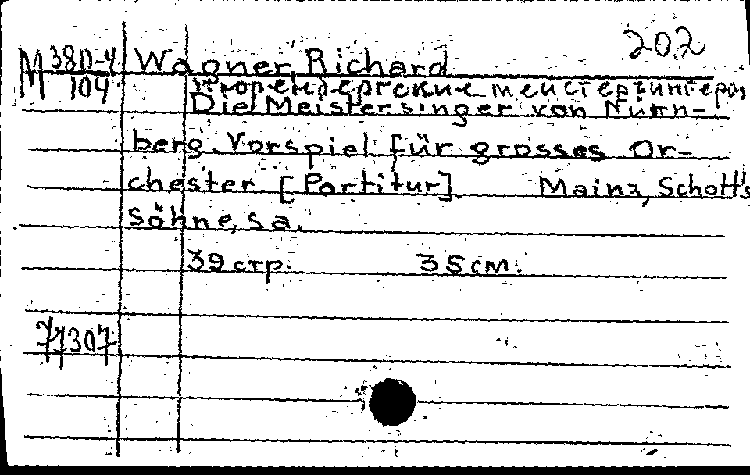 202
M 380-4 Wagner, Richard
104 Нюрендергские мейстерзингеры
Die Meistersinger von Nürn-
berg. Vorspiel für grosses Or-
chester [Partitur]. Mainz, Schott's
Söhne, s a.
39 стр. 35 см.
77307